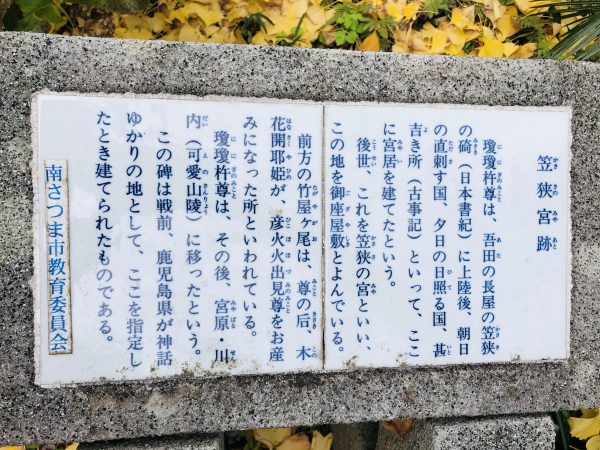 笠狭宮跡
瓊瓊杵尊は、吾田の長屋の笠狭
の碕（日本書紀）に上陸後、朝日
の直刺す国、夕日の日照る国、甚
吉き所（古事記）といって、ここ
に宮居を建てたという。
後世、これを笠狭の宮といい、
この地を御座屋敷とよんでいる。
前方の竹屋ヶ尾は、尊の后、木
花開耶姫が、彦火火出見尊をお産
みになった所といわれている。
瓊瓊杵尊は、その後、宮原・川
内（可愛山陵）に移ったという。
この碑は戦前、鹿児島県が神話
ゆかりの地として、ここを指定し
たとき建てられたものである。
南さつま市教育委員会